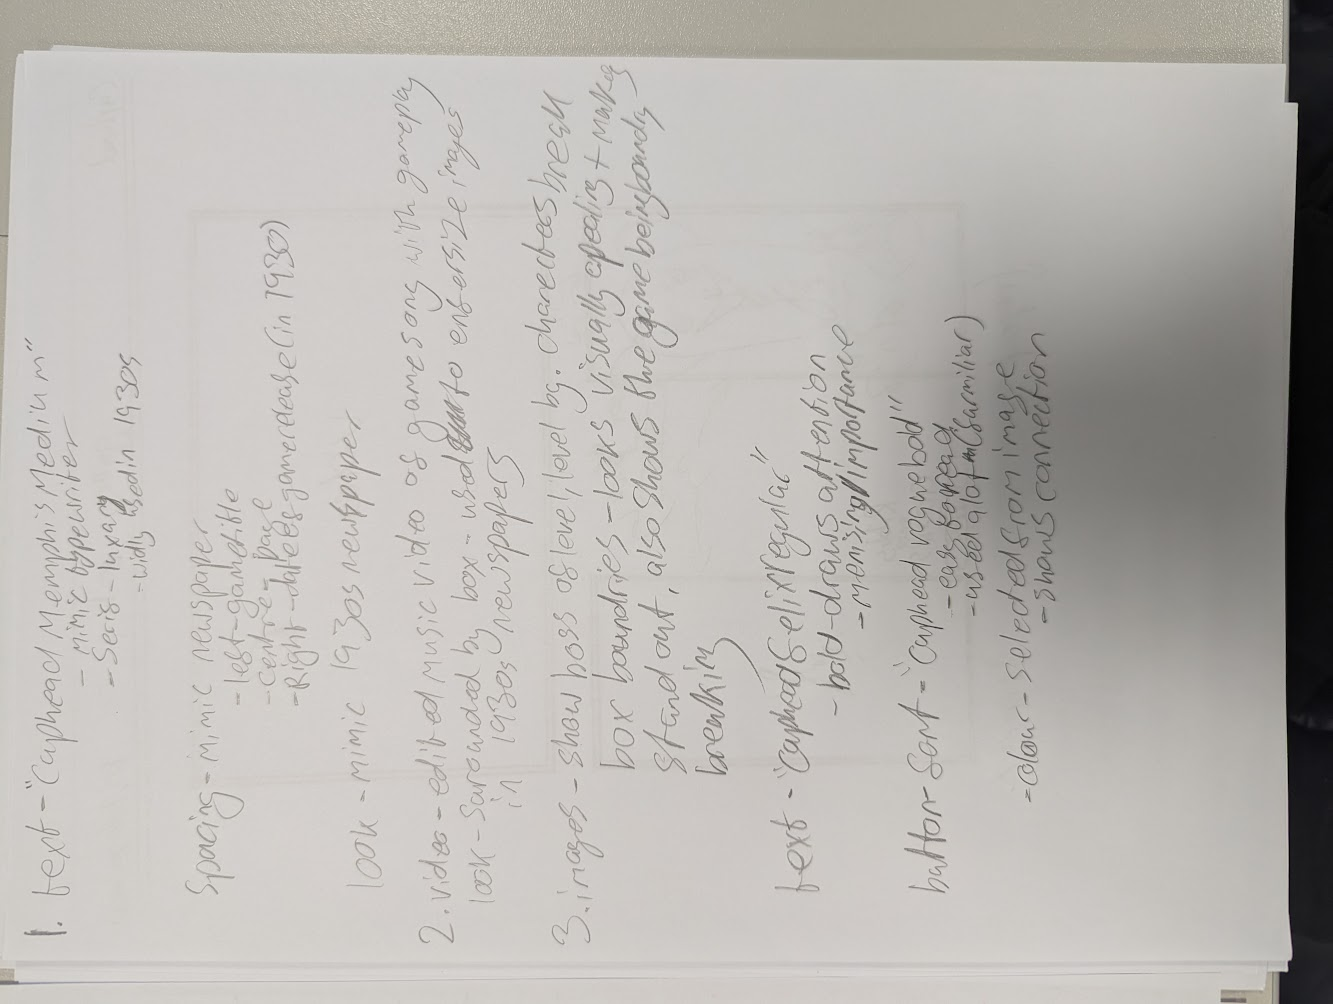 1. text - "Cuphead Memphis Medium"
- mimic typewriter
- Serif - luxary
- widly used in 1930s
Spacing - mimic newspaper
- left - game title
- centre - page
- Right - date (game release (in 1930)
look - mimic 1930s newspaper
2. video - edited music video of game song with gameplay
look - Surounded by box - used to enfersize images
in 1930s newspapers
3. images - show boss of level, level bg. charecters break
box boundries - looks visually apealing + makes
stand out, also shows the game being boundry
breaking
text - "Cuphead Felix regular"
- bold - draws attention
- importance
button - font - "Cuphead vogue bold"
- ease to read
- used alot (familiar)
- colour - selected from image
- shows connection